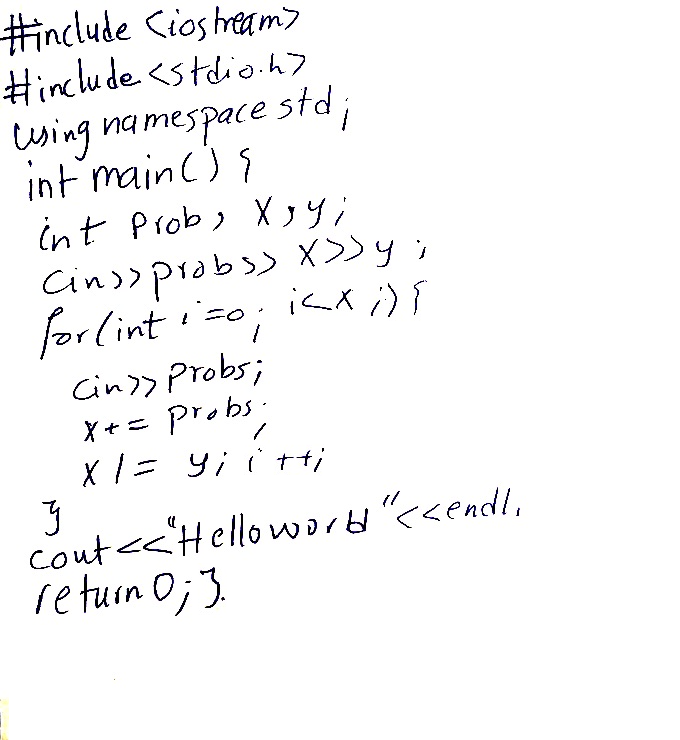 #include <iostream>
#include <stdio.h>
using namespace std;
int main() {
int prob, x, y;
cin>>prob>> x>>y;
for(int i=0; i<x;){
cin>> probs;
x+= probs;
x /= y; i++;
}
cout<<"Hello world"<<endl,
return 0;}.